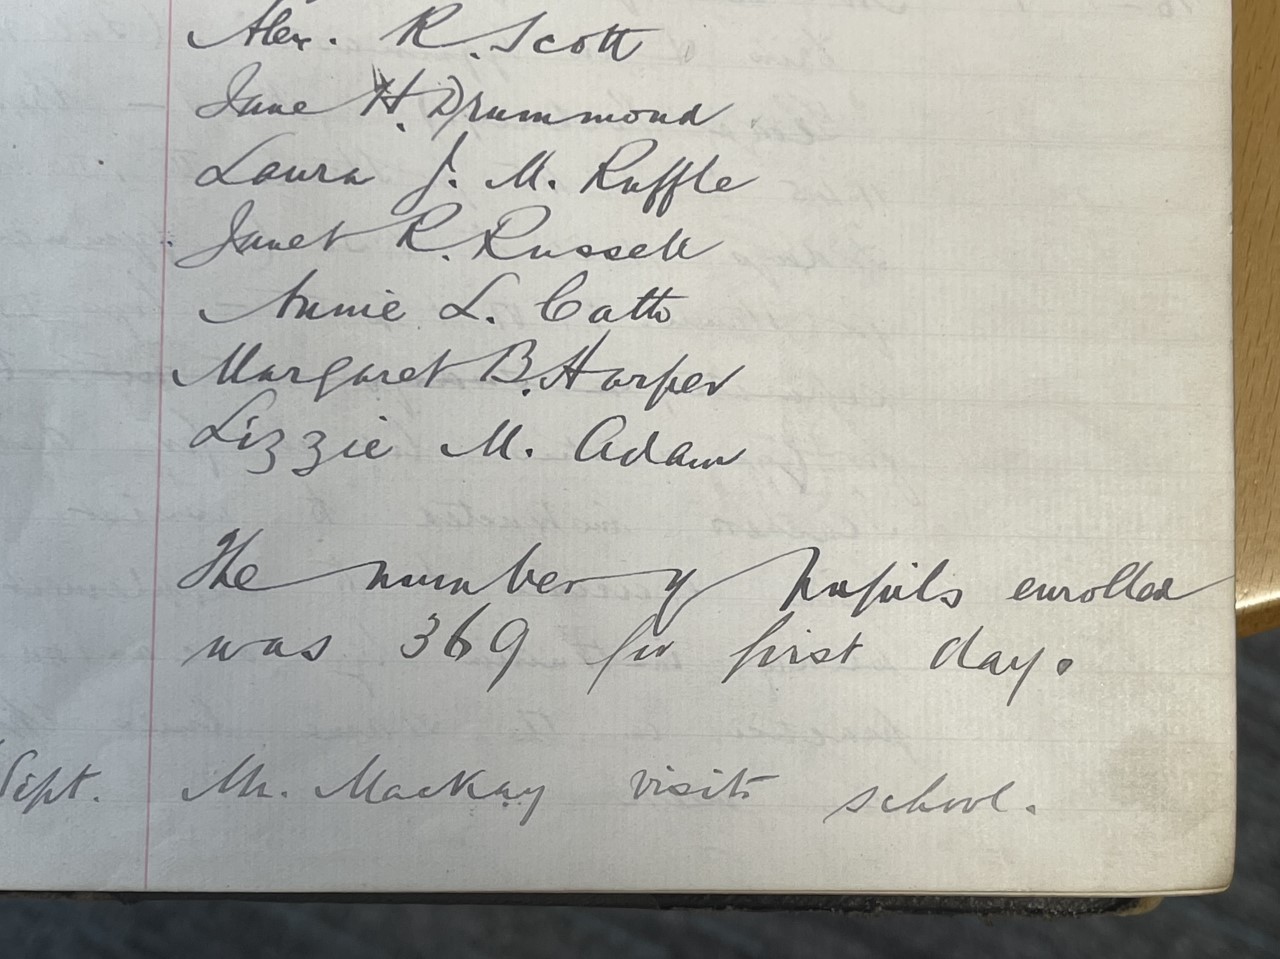 Alex. R. Scott
Jane H. Drummond
Laura J. M. Ruffle
Janet R. Russell
Annie L. Catto
Margaret B. Harper
Lizzie M. Adam
The number of pupils enrolled
was 369 for first day.
Sept. Mr. Mackay visits school.